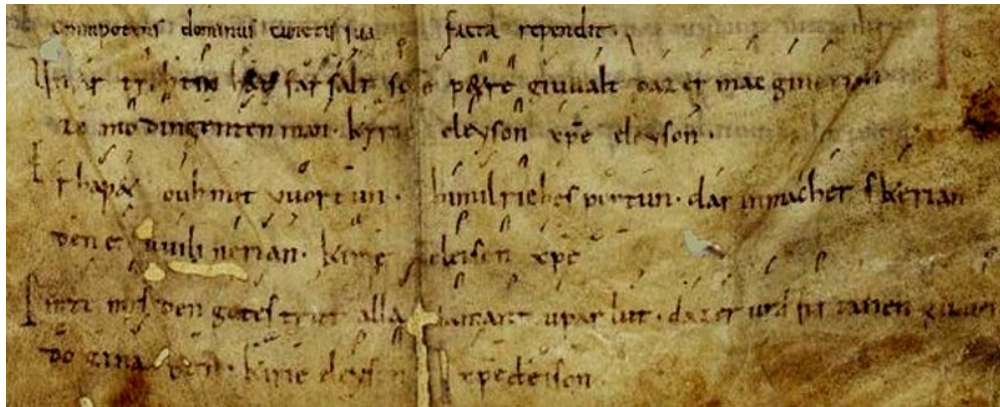 omnipotens dominus cunctis sua facta rependit.
Unsar trohtin hat farsalt sc̄e petre giuualt daz er mac ginerian
ze imo dingenten man. kyrie eleyson xp̄e eleyson.
Er hapet ouh mit vuortun. himilriches portun. dar in mach er skerian
den er uuili nerian. kirie eleison xp̄e
den gotes trut alla samant upar lut. daz er uns firtanen giuuer
do ginaden. kirie eleyson xp̄e eleison.